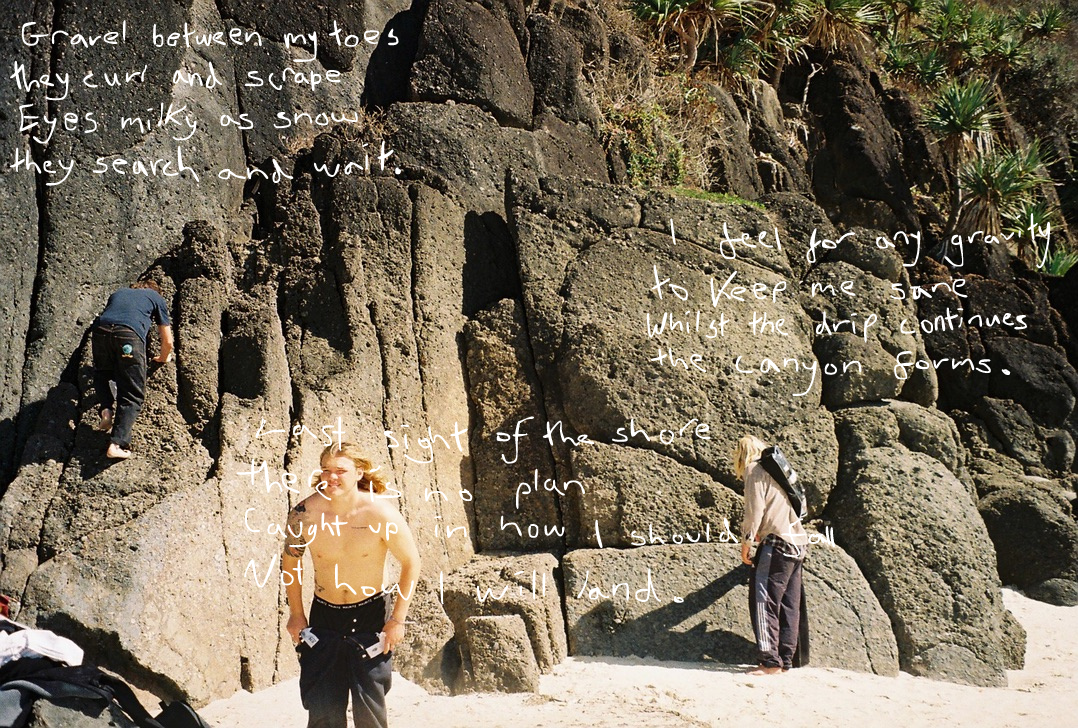 Gravel between my toes
they curl and scrape
Eyes milky as snow
they search and wait.
I feel for any gravity
to keep me sane
Whilst the drip continues
the canyon forms.
Last sight of the shore
there is no plan
Caught up in how I should fall
Not how I will land.